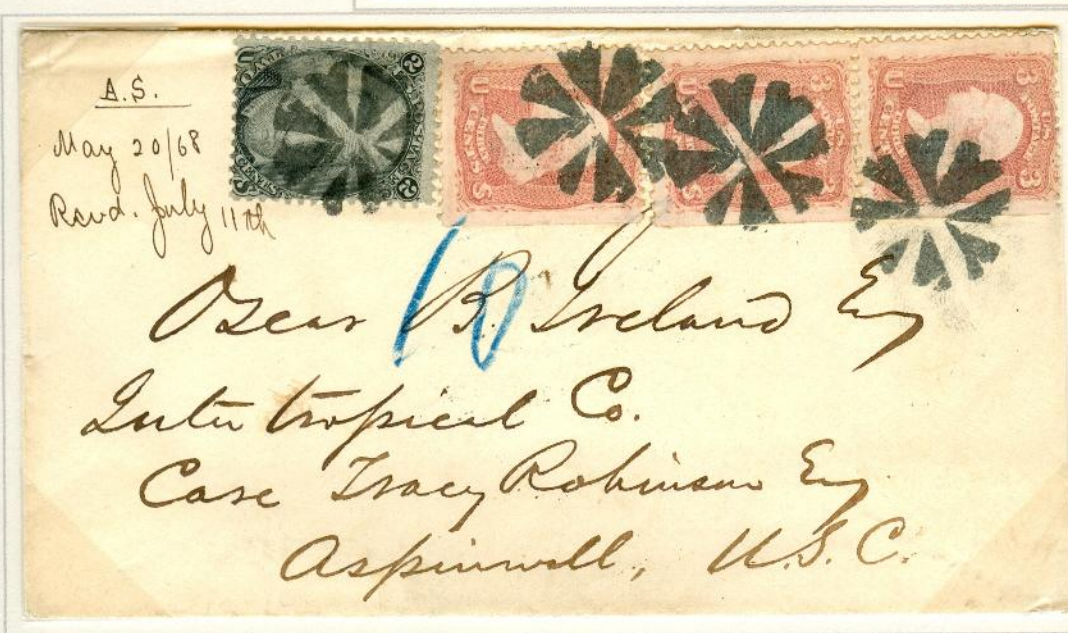 A.S.
May 20/68
Recvd. July 11th
10
Oscar R. Ireland Esq
Inter tropical Co.
Care Tracy Robinson Esq
Aspinwall, U.S.C.
U 3
CENTS
U S
3